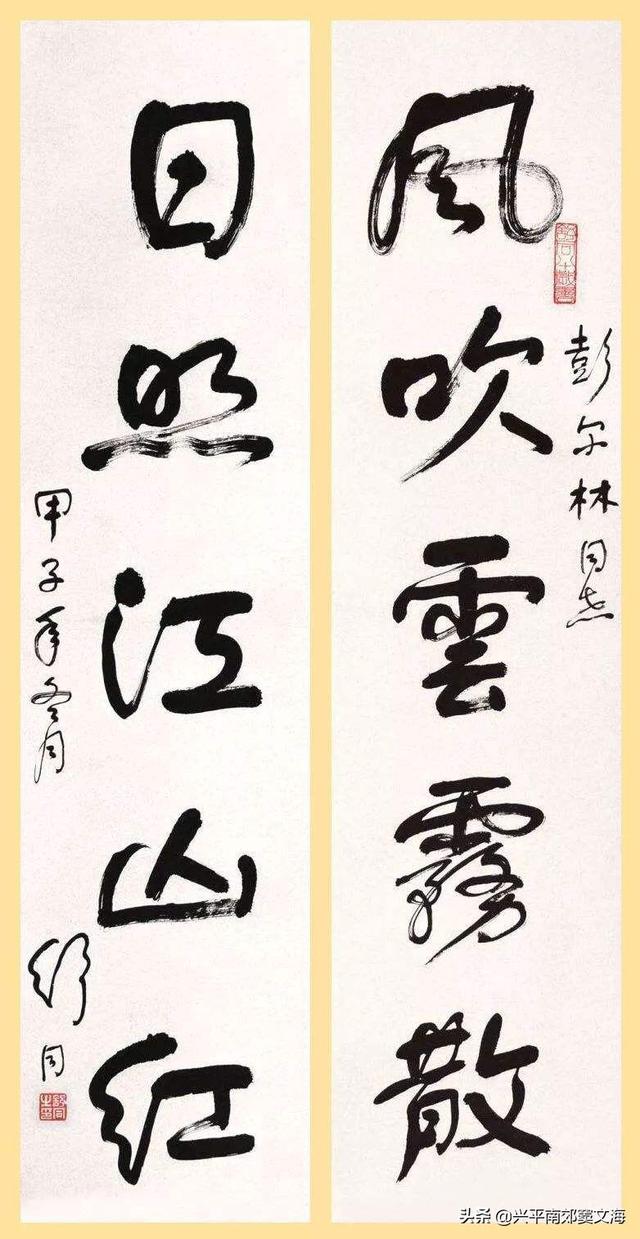 風吹雲霧散
彭尔林同志
日照江山红
甲子年冬月
舒同
舒同之印
头条@兴平南郊窦文海